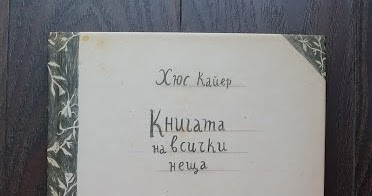 Хюс Кайер
Книгата
на всички
неща